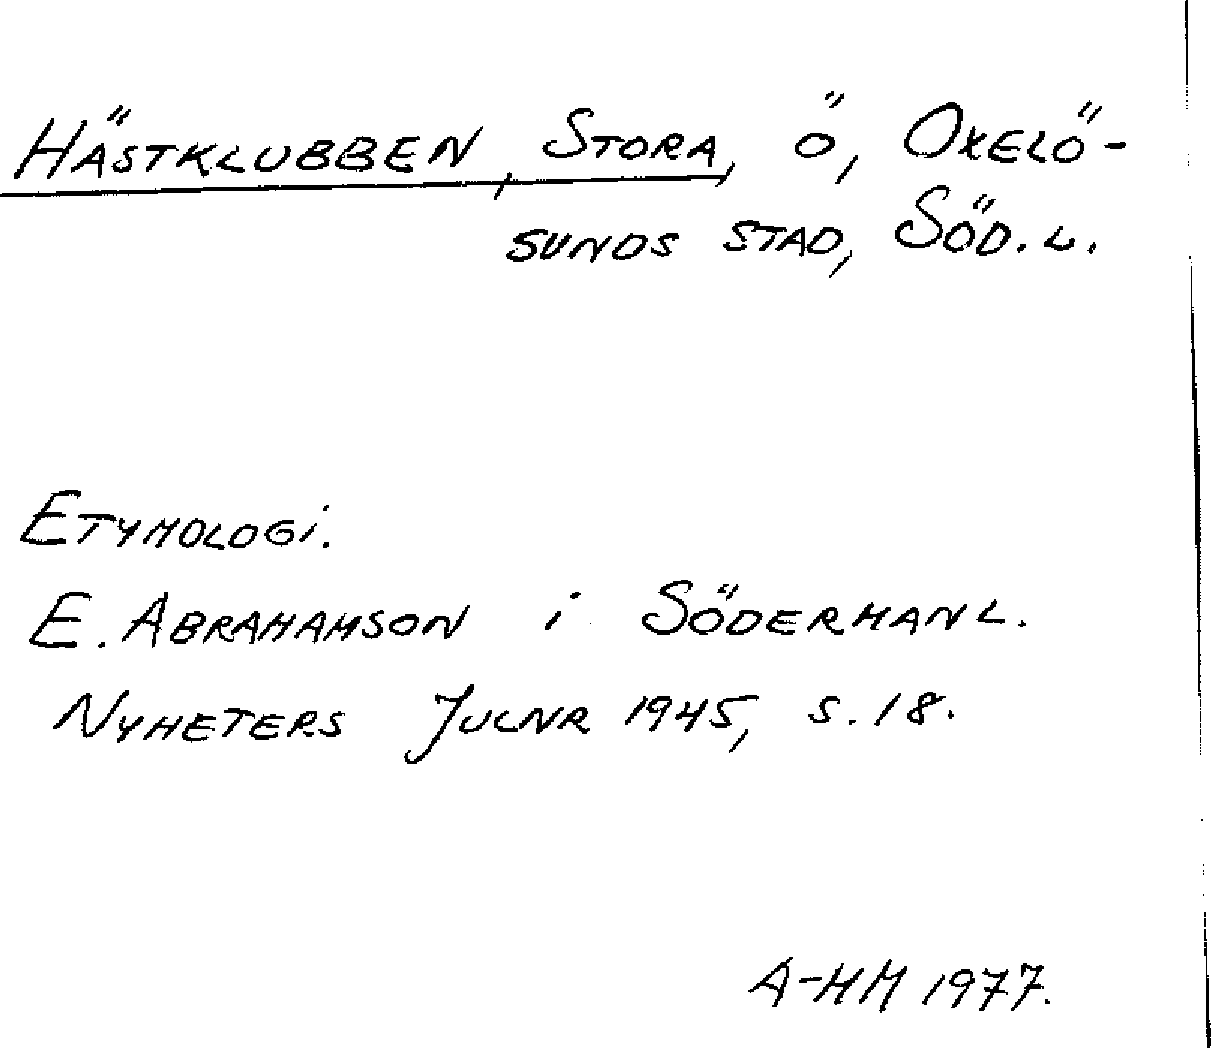 HÄSTKLUBBEN, STORA, Ö, OXELÖ-
SUNDS STAD, SÖD. L.
ETYMOLOGI.
E. ABRAHAMSON i SÖDERMANL.
NYHETERS JULNR 1945, S. 18.
A-HM 1977.